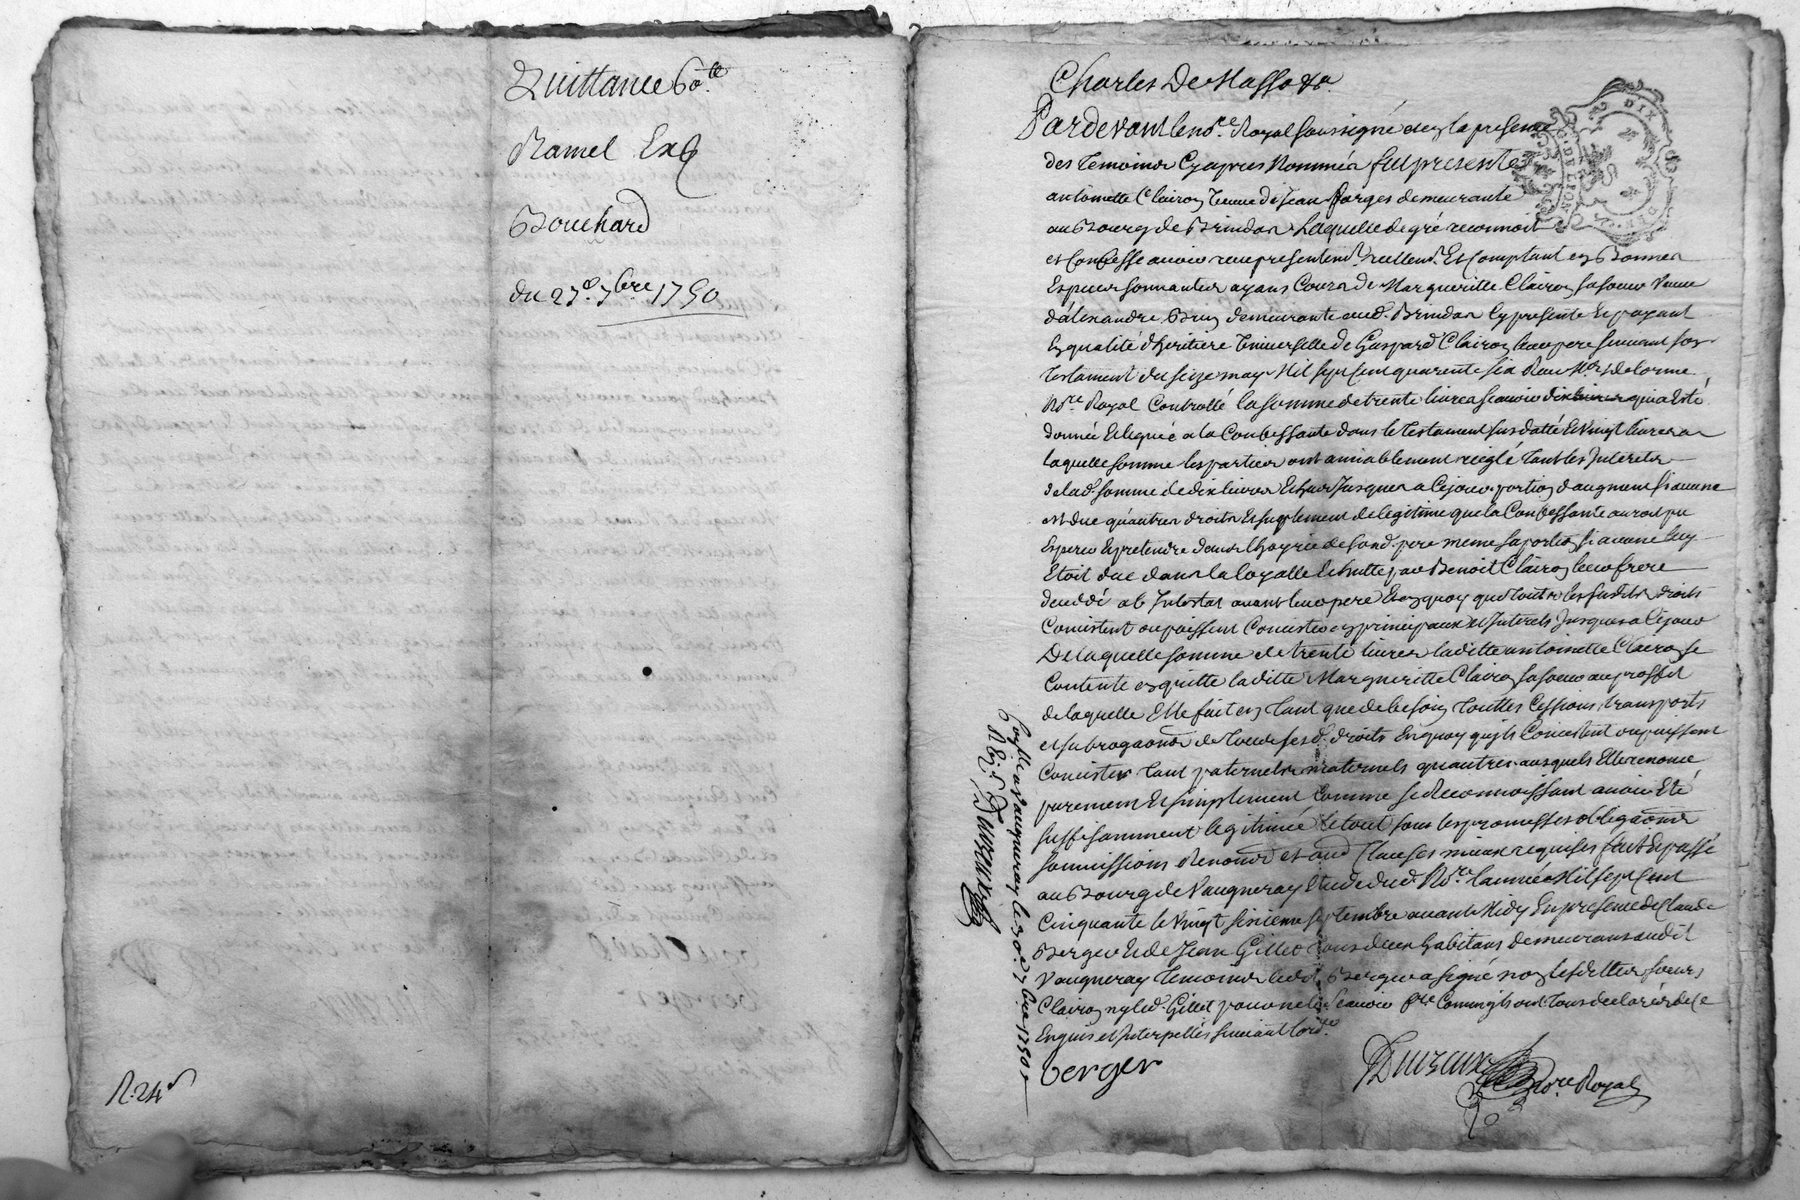 Quittance 60.tt
Ramel Exq
Bouchard
du 27.e 7bre 1750
R. 24s
Charles De Masso &a.
Pardevant le nore. Royal soussigné et en la presence
des Temoins Cyapres Nommés fut presente
antoinette Clairon veuve de Jean farges demeurante
au Bourg de Brindas Laquelle de gré reconnoit
et Confesse avoir reçu presentemt. reellemt. Et Comptant en Bonnes
Especes sonnantes ayans Cours de Margueritte Clairon sa soeur Veuve
d'alexandre Brun demeurante aud. Brindas Cy presente Et payant
En qualité d'heritiere Universelle de Gaspard Clairon leur pere suivant son
Testament du seize may Mil sept cent quarente six Reçu Me. delorme
Nore. Royal Controllé la somme de trente livres scavoir dix livres qui a Eté
donnée Et leguée a la Confessante dans le Testament susdatté Et Vingt livres a
laquelle somme les parties ont amiablement reiglé tant les Interets
de lad. somme de dix livres Echus Jusques a Ce jour portion d'augment si aucune
est due qu'autres droits Et suplement de legitime que la Confessante auroit pu
Esperer Et pretendre dans l'hoyrie de sond. pere meme sa portion si aucune luy
Etoit due dans la loyalle Echutte par Benoit Clairon leur frere
decedé ab Intestat avant leur pere Et en quoy que tous les susdits droits
Consistent ou puissent Consister en principaux et Interets Jusques a Ce jour
De laquelle somme de trente livres laditte antoinette Clairon se
Contente en quitte laditte Margueritte Clairon sa soeur au proffit
de laquelle Elle fait en tant que de besoin touttes Cessions, transports
et subrogaons de tous sesd. droits En quoy qu'ils Consistent ou puissent
Consister tant paternels maternels qu'autres ausquels Elle renonce
purement Et simplement Comme se Reconnoissant avoir Eté
suffisamment legitimée le tout sous les promesses obligaons
soumissions Renonons et aues Clauses mieux requises fait Et passé
au Bourg de Vaugneray Etude dud. Nore. l'année Mil sept Cent
Cinquante le Vingt sixieme septembre avant Midy En presence de Claude
Berger Et de Jean Gillet tous deux habitans demeurans audit
Vaugneray Temoins led. Berger a signé non lesdittes soeurs
Clairon ny led. Gillet pour ne le scavoir Comm' ils ont tous declarés de ce
Enquis et Interpellés suivant l'orde.
berger
Dureux Nore Royal
Conlle a Vaugneray le 30e 7bre 1750
Dureux